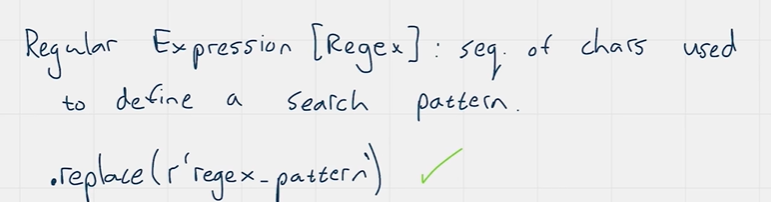 Regular Expression [Regex]: seq. of chars used
to define a search pattern.
.replace(r'regex-pattern')